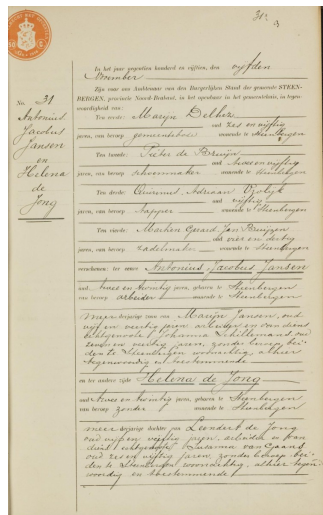 31
No. 31
Antonius
Jacobus
Jansen
en
Helena
de
Jong
In het jaar negentien honderd en vijftien, den vyfden
November
Zijn voor ons Ambtenaar van den Burgerlijken Stand der gemeente STEEN-
BERGEN, provincie Noord-Brabant, in het openbaar in het gemeentehuis, in tegen-
woordigheid van:
Ten eerste Marijn Delhez
oud zes en vijftig
jaren, van beroep gemeentebode wonende te Steenbergen
Ten tweede Pieter de Bruijn
oud twee en vijftig
jaren, van beroep schoenmaker wonende te Steenbergen
Ten derde Adriaan
oud vijftig
jaren, van beroep tapper wonende te Steenbergen
Ten vierde Gerard Jan
oud vier en dertig
jaren, van beroep zadelmaker wonende te Steenbergen
verschenen: ter eenre Antonius Jacobus Jansen
oud twee en twintig jaren, geboren te Steenbergen
van beroep arbeider wonende te Steenbergen
meerderjarige zoon van Marijn Jansen, oud
vijf en veertig jaren, arbeider en van diens
echtgenoote Johanna oud
zeven en veertig jaren, zonder beroep bei-
den te Steenbergen woonachtig alhier
tegenwoordig en toestemmende
en ter andere zijde Helena de Jong
oud twee en twintig jaren, geboren te Steenbergen
van beroep zonder wonende te Steenbergen
meerderjarige dochter van Leendert de Jong
oud vijf en vijftig jaren, arbeider en van
diens echtgenoote van
oud zes en vijftig jaren zonder beroep bei-
den te Steenbergen woonachtig, alhier tegen-
woordig en toestemmende